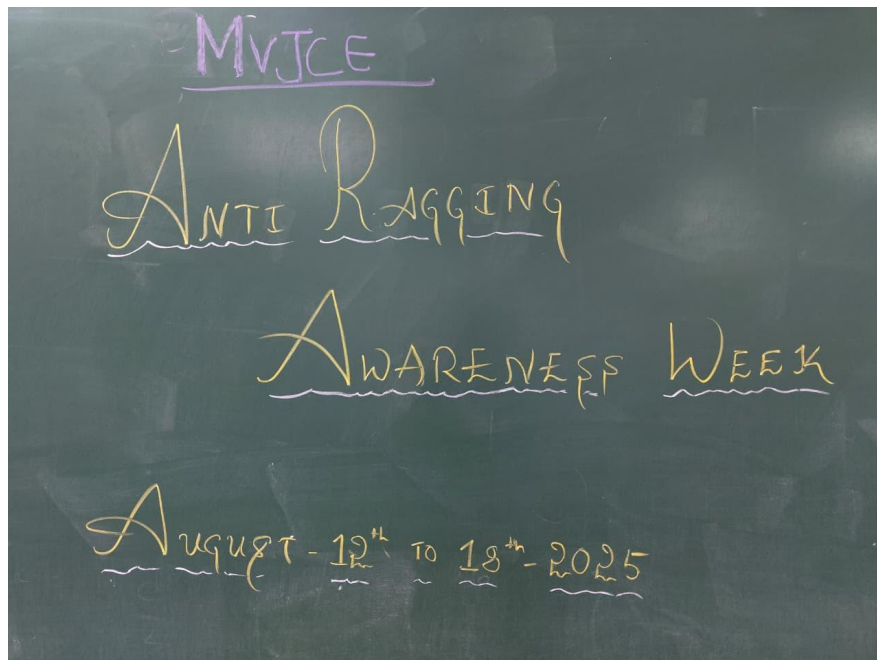 MVJCE
ANTI RAGGING
AWARENESS WEEK
AUGUST - 12th TO 18th - 2025